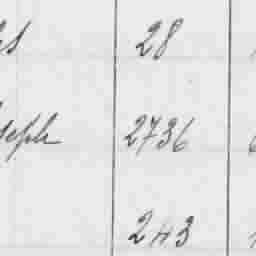 28
seph 2736
243